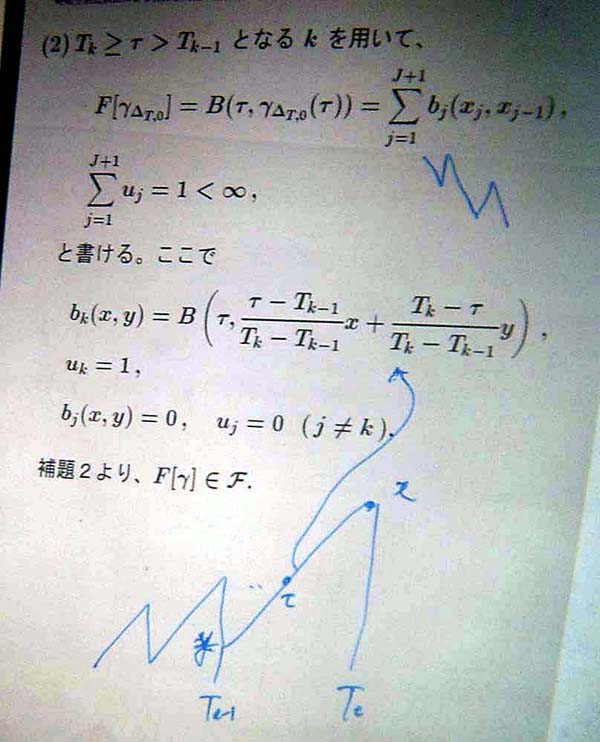 (2) T_k ≥ τ > T_{k−1} となる k を用いて、
F[γ_{Δ_{T,0}}] = B(τ, γ_{Δ_{T,0}}(τ)) = ∑_{j=1}^{J+1} b_j(x_j, x_{j−1}) ,
∑_{j=1}^{J+1} u_j = 1 < ∞ ,
と書ける。ここで
b_k(x, y) = B ( τ, \frac{τ − T_{k−1}}{T_k − T_{k−1}} x + \frac{T_k − τ}{T_k − T_{k−1}} y ) ,
u_k = 1 ,
b_j(x, y) = 0 , u_j = 0 ( j ≠ k ).
補題2より、F[γ] ∈ ℱ.
x
τ
y